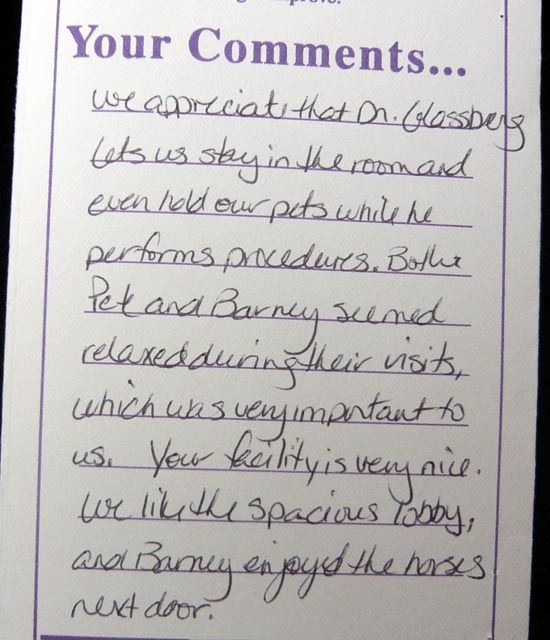 Your Comments...
We appreciate that Dr. Glassberg
lets us stay in the room and
even hold our pets while he
performs procedures. Both
Pet and Barney seemed
relaxed during their visits,
which was very important to
us. Your facility is very nice.
We like the spacious lobby,
and Barney enjoyed the horses
next door.